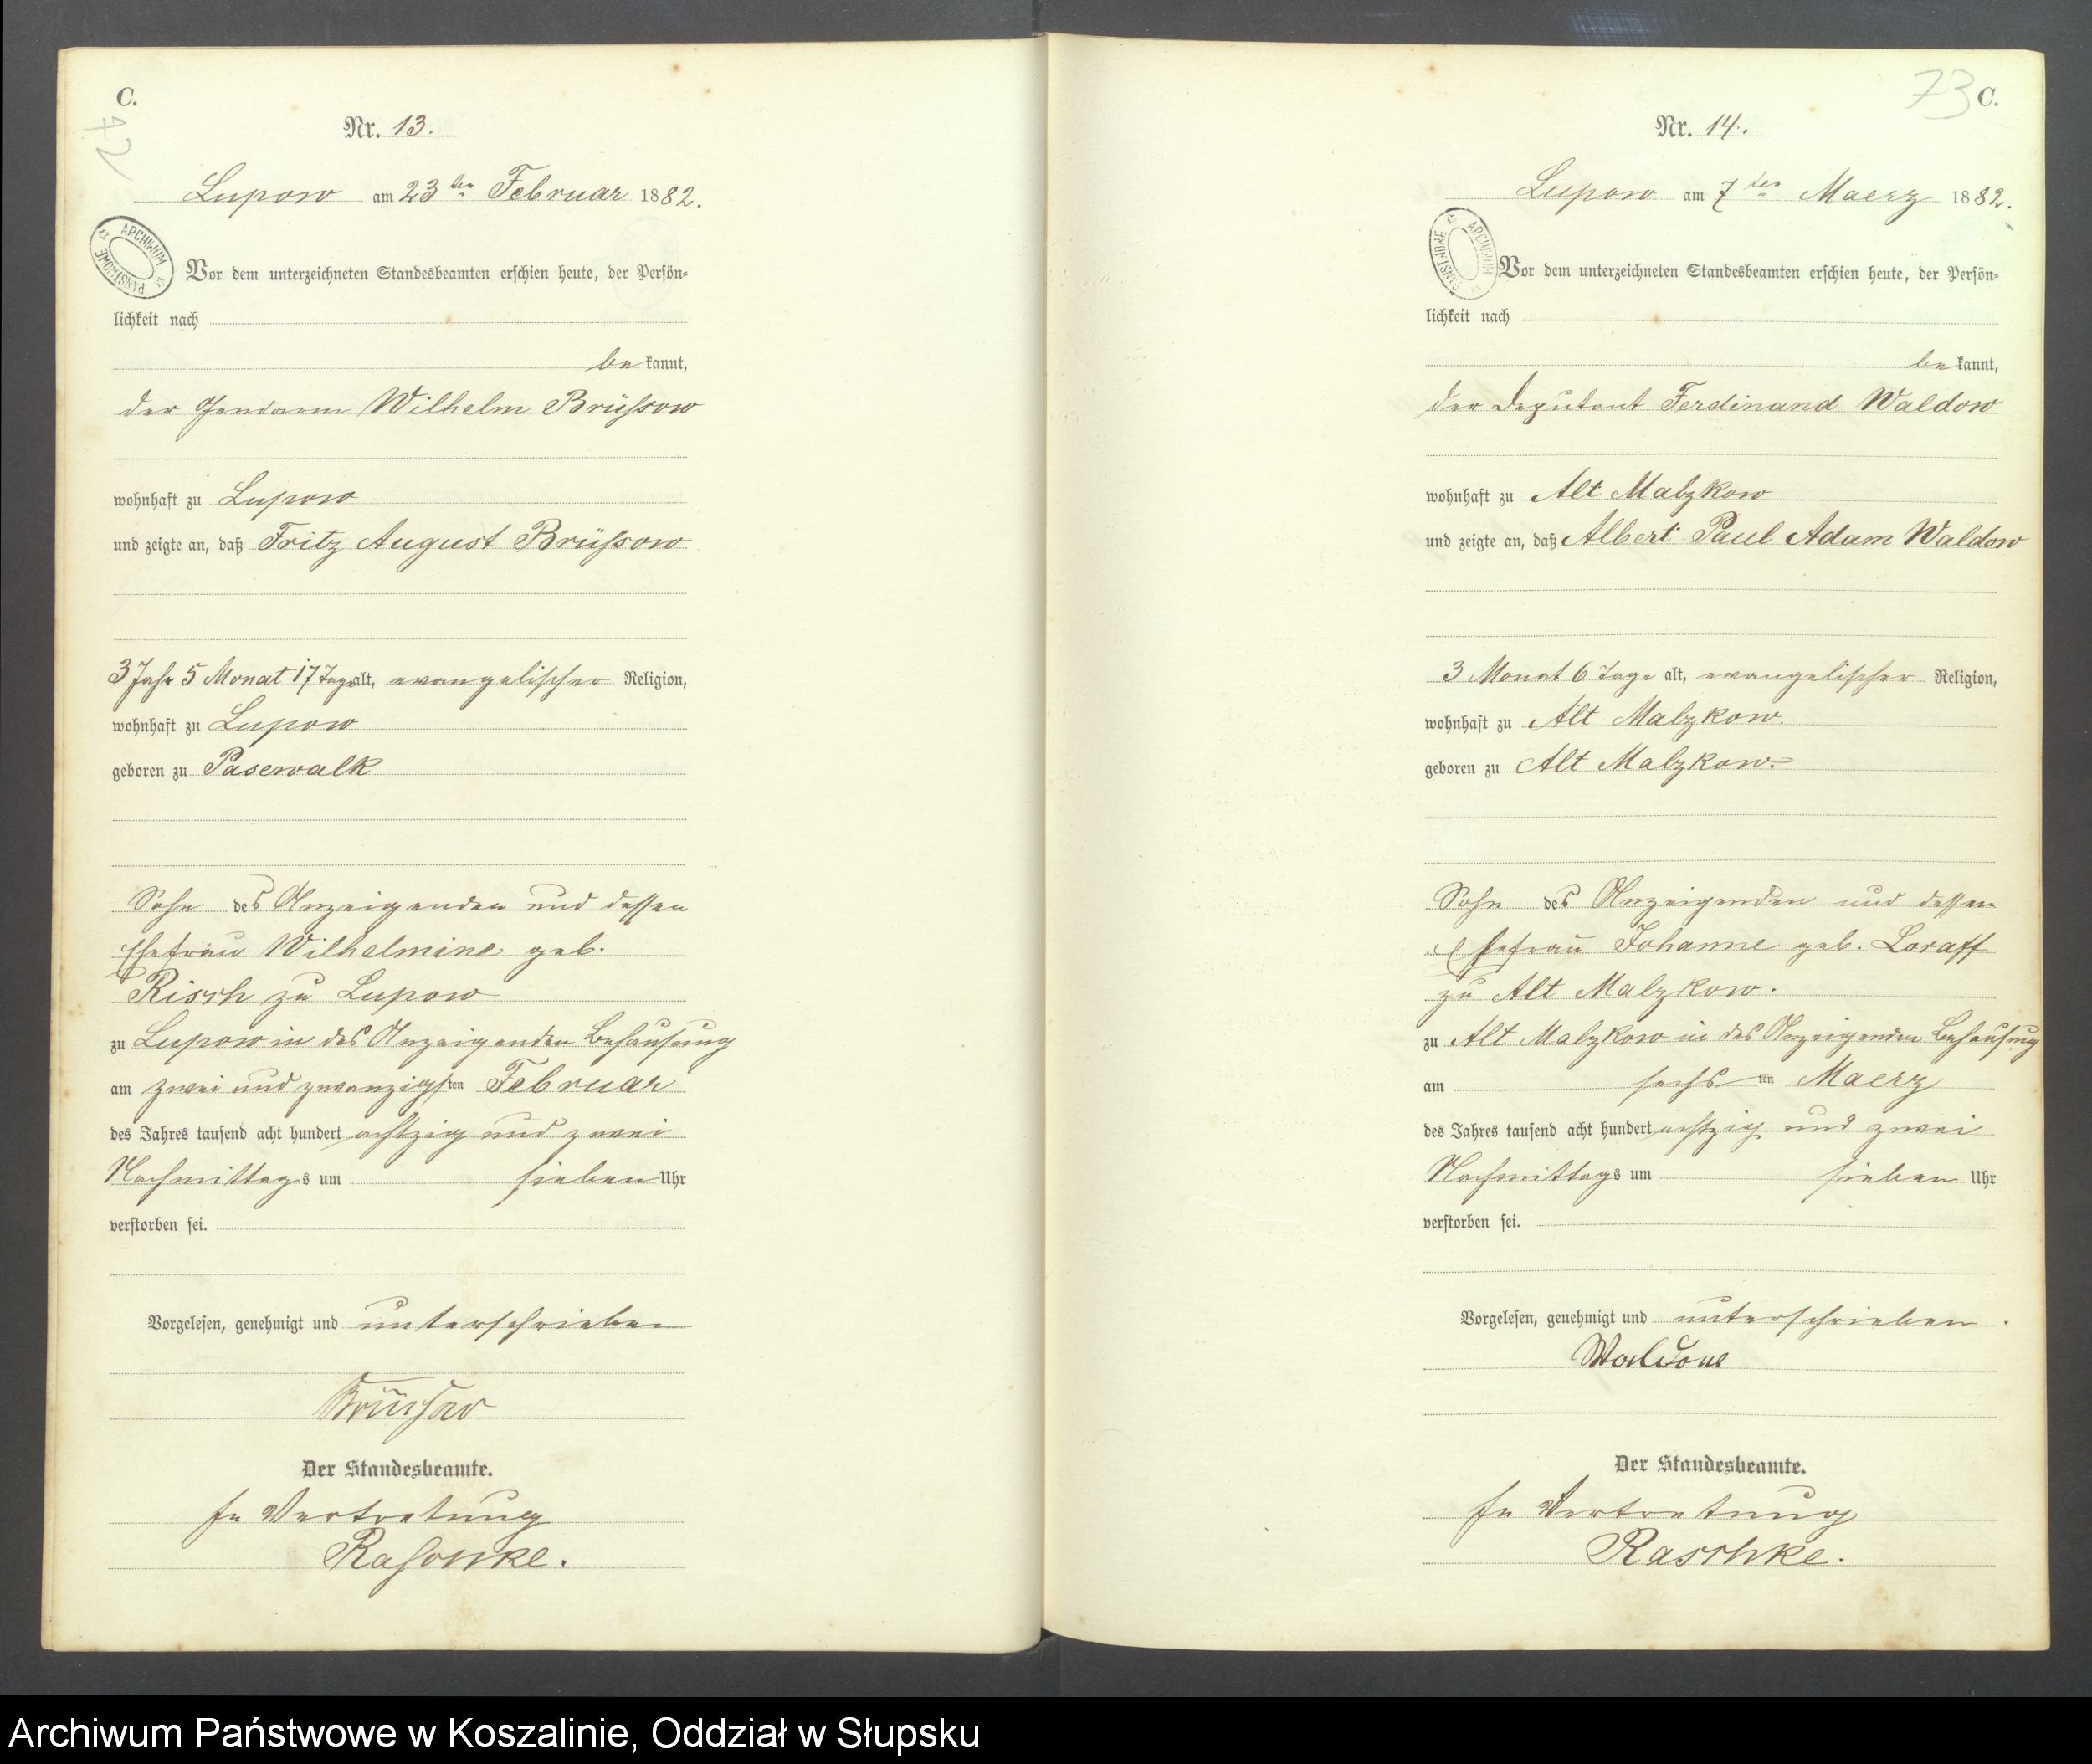 C.
Nr. 13.
Lupow am 23ten Februar 1882.
ARCHIWUM PAŃSTWOWE
Vor dem unterzeichneten Standesbeamten erschien heute, der Persön-
lichkeit nach
be kannt,
der Gendarm Wilhelm Brüssow
wohnhaft zu Lupow
und zeigte an, daß Fritz August Brüssow
3 Jahr 5 Monat 17 Tage alt, evangelischer Religion,
wohnhaft zu Lupow
geboren zu Pasewalk
Sohn des Anzeigenden und dessen
Ehefrau Wilhelmine geb.
Risch zu Lupow
zu Lupow in des Anzeigenden Behausung
am zwei und zwanzigsten Februar
des Jahres tausend acht hundert achtzig und zwei
Nachmittags um sieben Uhr
verstorben sei.
Vorgelesen, genehmigt und unterschrieben
Brüssow
Der Standesbeamte.
In Vertretung
Raschke.
73 C.
Nr. 14.
Lupow am 7ten Maerz 1882.
ARCHIWUM PAŃSTWOWE
Vor dem unterzeichneten Standesbeamten erschien heute, der Persön-
lichkeit nach
be kannt,
der Deputant Ferdinand Waldow
wohnhaft zu Alt Malzkow
und zeigte an, daß Albert Paul Adam Waldow
3 Monat 6 Tage alt, evangelischer Religion,
wohnhaft zu Alt Malzkow.
geboren zu Alt Malzkow.
Sohn des Anzeigenden und dessen
Ehefrau Johanne geb. Loraff
zu Alt Malzkow.
zu Alt Malzkow in des Anzeigenden Behausung
am sechsten Maerz
des Jahres tausend acht hundert achtzig und zwei
Nachmittags um sieben Uhr
verstorben sei.
Vorgelesen, genehmigt und unterschrieben.
Waldow
Der Standesbeamte.
In Vertretung
Raschke.
Archiwum Państwowe w Koszalinie, Oddział w Słupsku